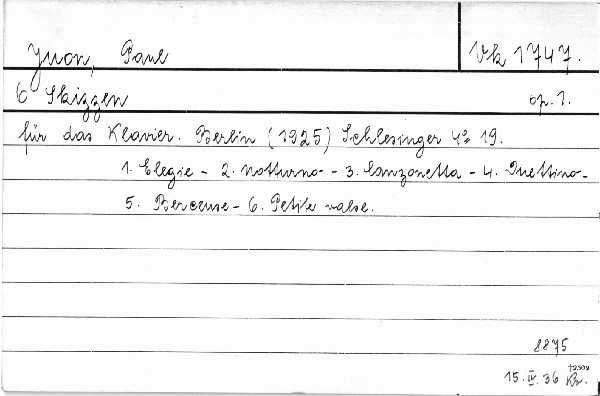 Juon, Paul Vk 1747.
6 Skizzen op. 1.
für das Klavier. Berlin (1925) Schlesinger 4° 19.
1. Elegie - 2. Notturno - 3. Canzonetta - 4. Duettino -
5. Berceuse - 6. Petite valse.
8875
15. IV. 36